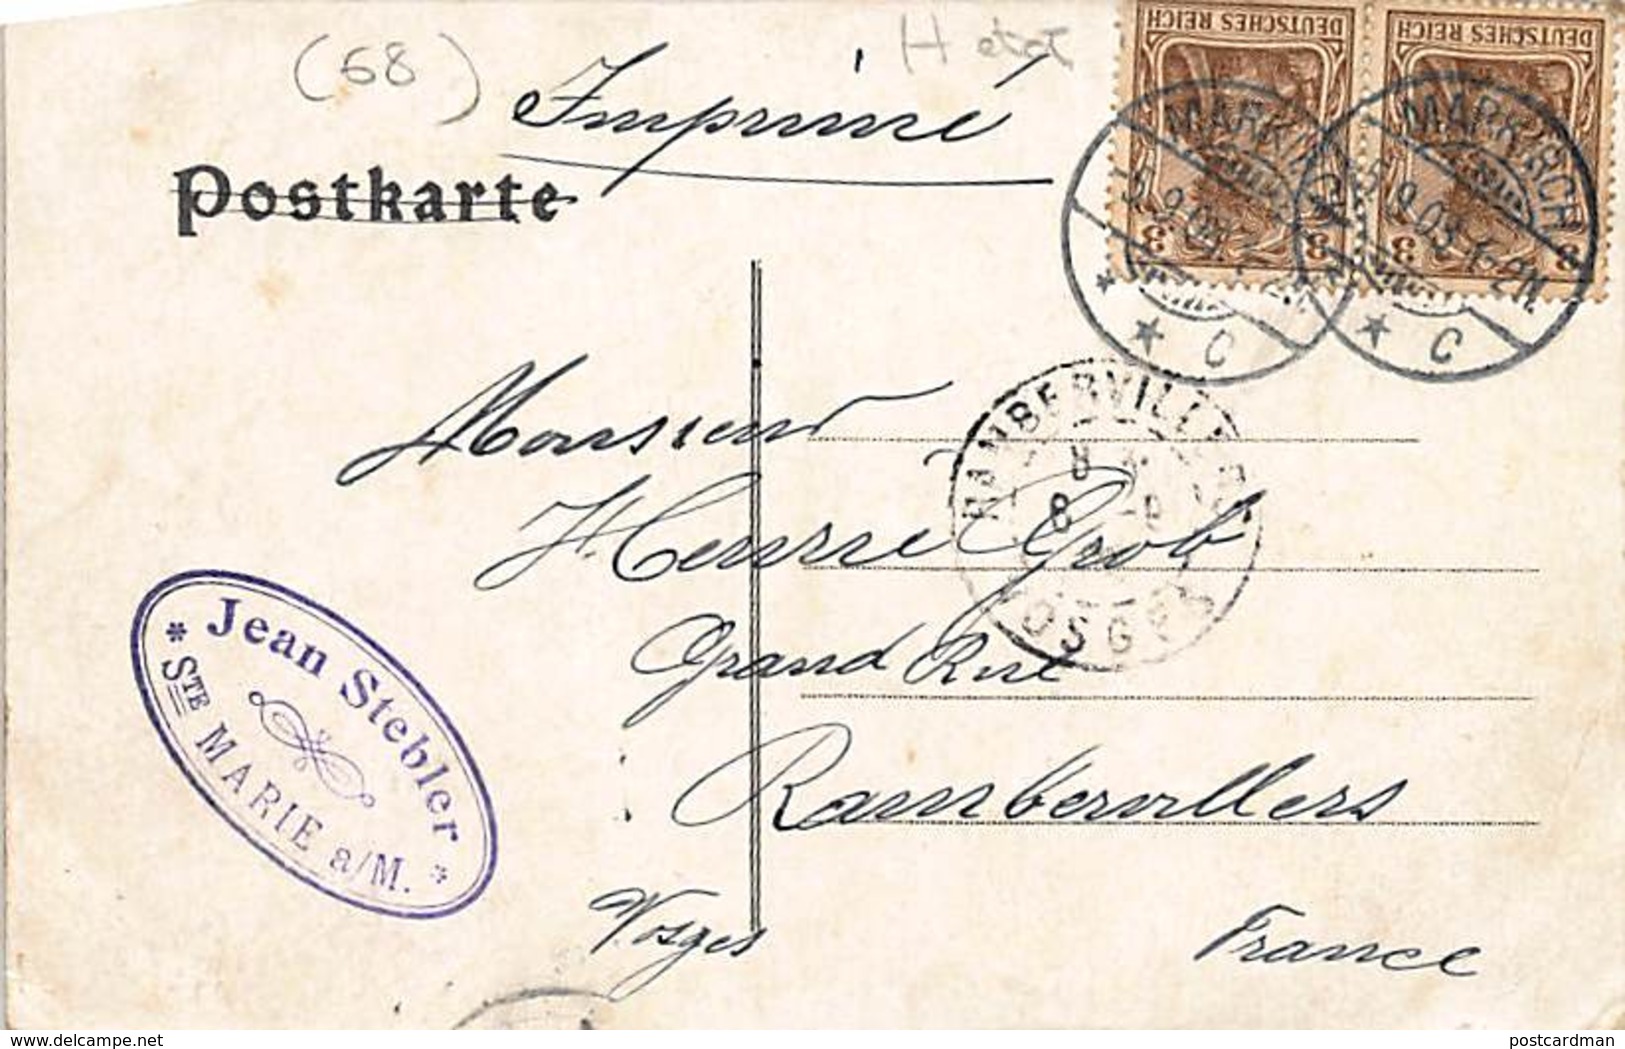 (68)
H état
Imprimé
Postkarte
DEUTSCHES REICH
3
3
DEUTSCHES REICH
3
3
MARKIRCH
9.03
C
MARKIRCH
9.03.1-2N.
C
RAMBERVILLERS
8
VOSGES
Monsieur
Henri Grob
Grand Rue
Rambervillers
Vosges
France
* Jean Stebler *
STE MARIE a/M.
delcampe.net
postcardman